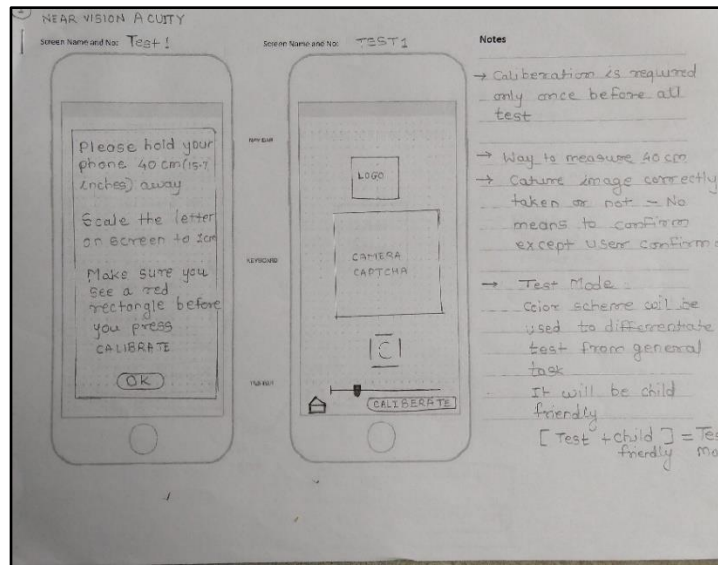 NEAR VISION ACUITY
Screen Name and No: Test 1
Please hold your
phone 40 cm (15.7
inches) away
Scale the letter
on screen to 1cm
Make sure you
see a red
rectangle before
you press
CALIBRATE
OK
Screen Name and No: TEST 1
NAV BAR
KEYBOARD
TAB BAR
LOGO
CAMERA
CAPTCHA
C
CALIBERATE
Notes
→ Caliberation is required
only once before all
test
→ Way to measure 40 cm
→ Cature image correctly
taken or not - No
means to confirm
except user confirm
→ Test Mode
Color scheme will be
used to differentiate
test from general
task
It will be child
friendly
[Test + Child friendly] = Tes
mo